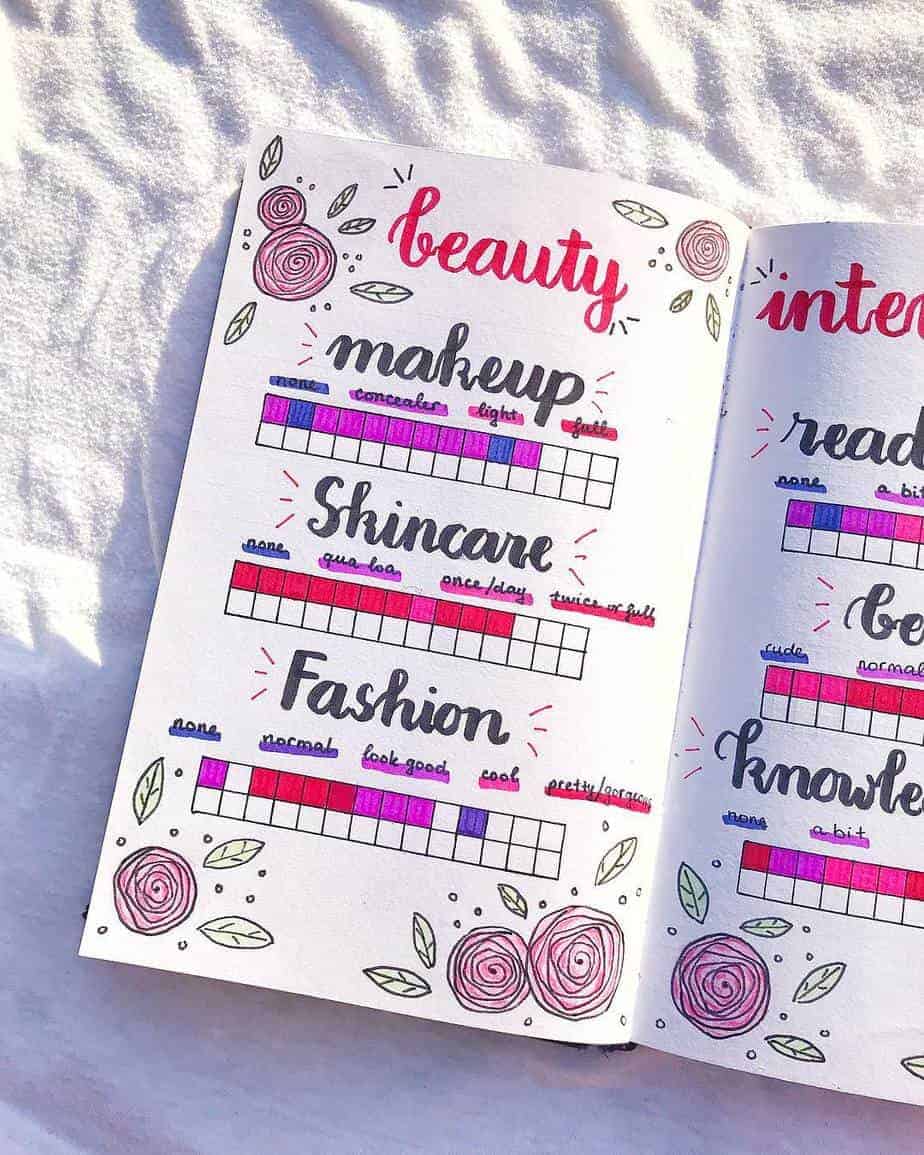 beauty
makeup
none concealer light full
Skincare
none qua loa once/day twice or full
Fashion
none normal look good cool pretty/gorgeous
none a bit
rude normal
none a bit